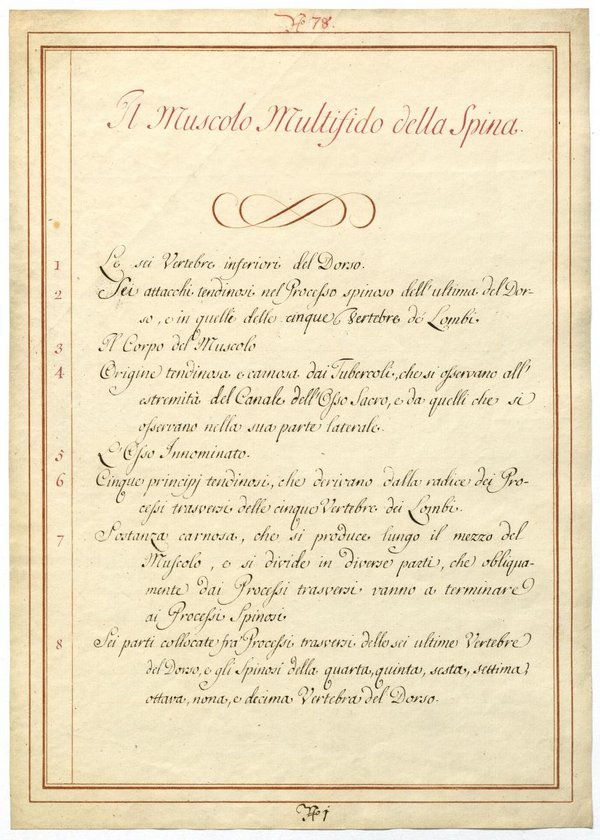 Nº 78.
Il Muscolo Multifido della Spina.
1 Le sei Vertebre inferiori del Dorso.
2 Sei attacchi tendinosi nel Processo spinoso dell'ultima del Dor-
so, e in quelli delle cinque Vertebre de' Lombi.
3 Il Corpo del Muscolo
4 Origine tendinosa e carnosa dai Tubercoli, che si osservano all'
estremità del Canale dell'Osso Sacro, e da quelli che si
osservano nella sua parte laterale.
5 L'Osso Innominato.
6 Cinque principj tendinosi, che derivano dalla radice dei Pro-
cessi trasversi delle cinque Vertebre dei Lombi.
7 Sostanza carnosa, che si produce lungo il mezzo del
Muscolo, e si divide in diverse parti, che obliqua-
mente dai Processi trasversi vanno a terminare
ai Processi Spinosi
8 Sei parti collocate fra' Processi trasversi delle sei ultime Vertebre
del Dorso, e gli Spinosi della quarta, quinta, sesta, settima,
ottava, nona, e decima Vertebra del Dorso.
Nº 1